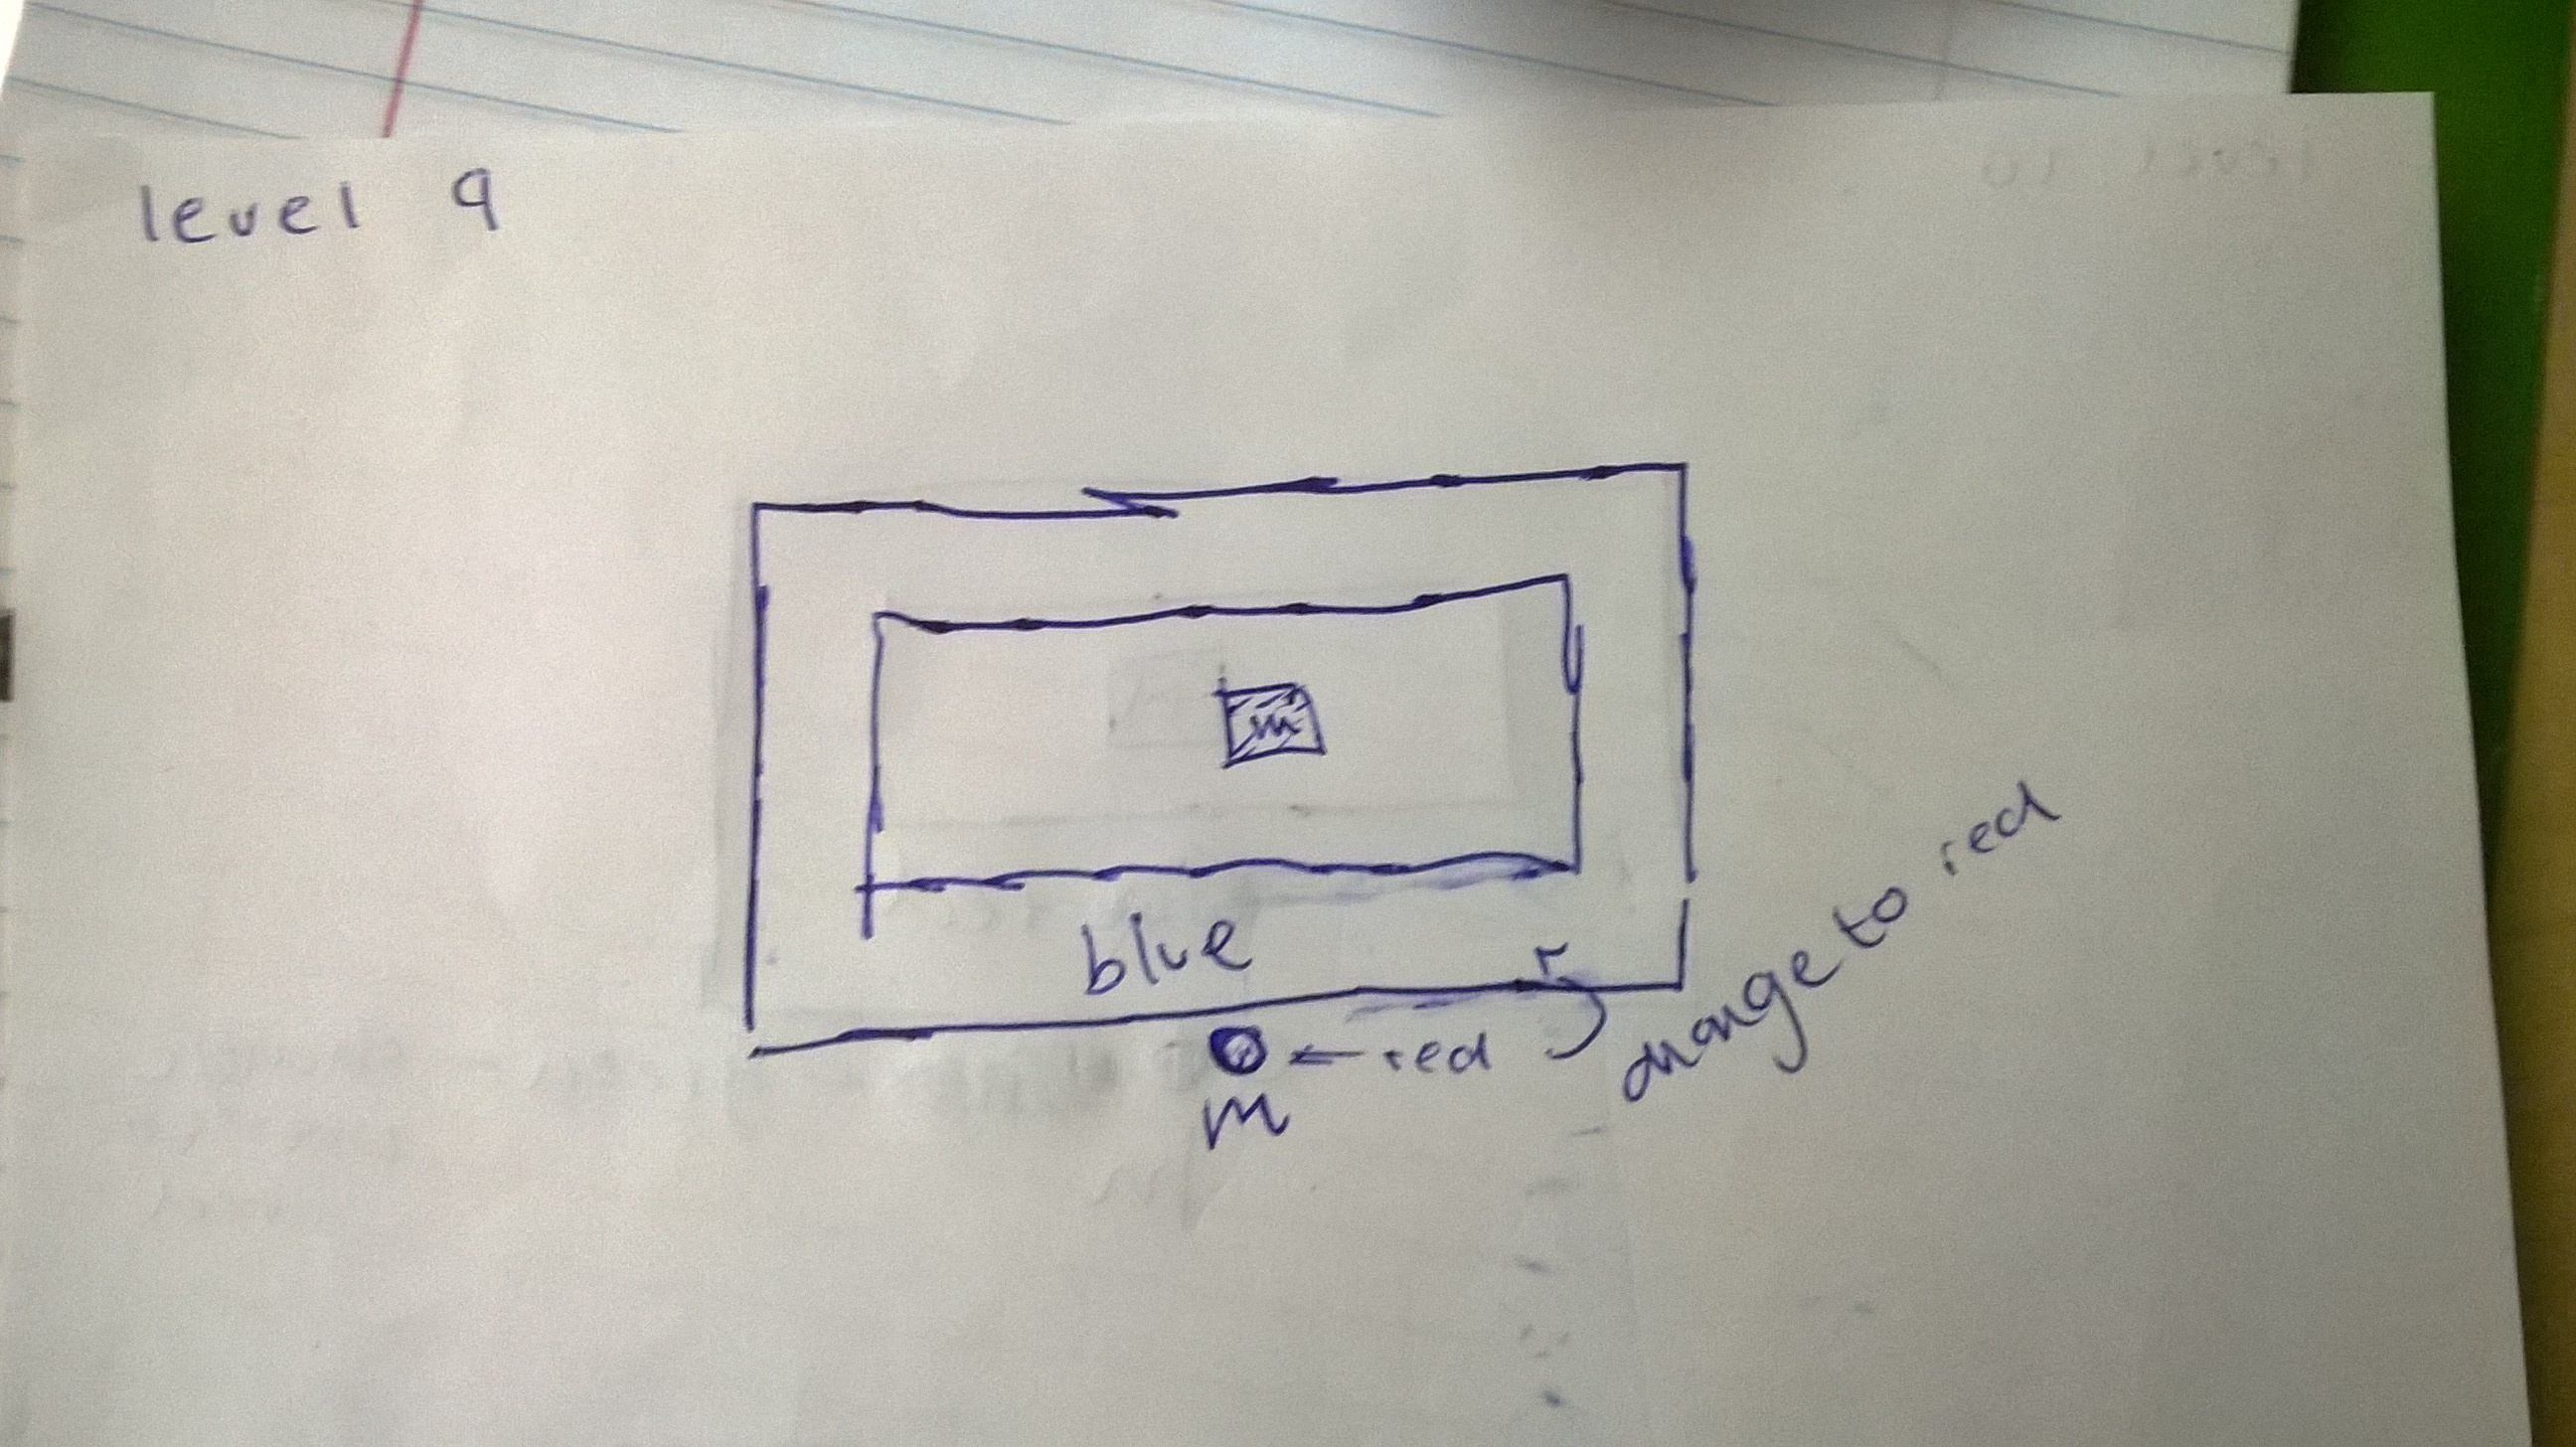 level 9
m
blue
r
← red
change to red
m